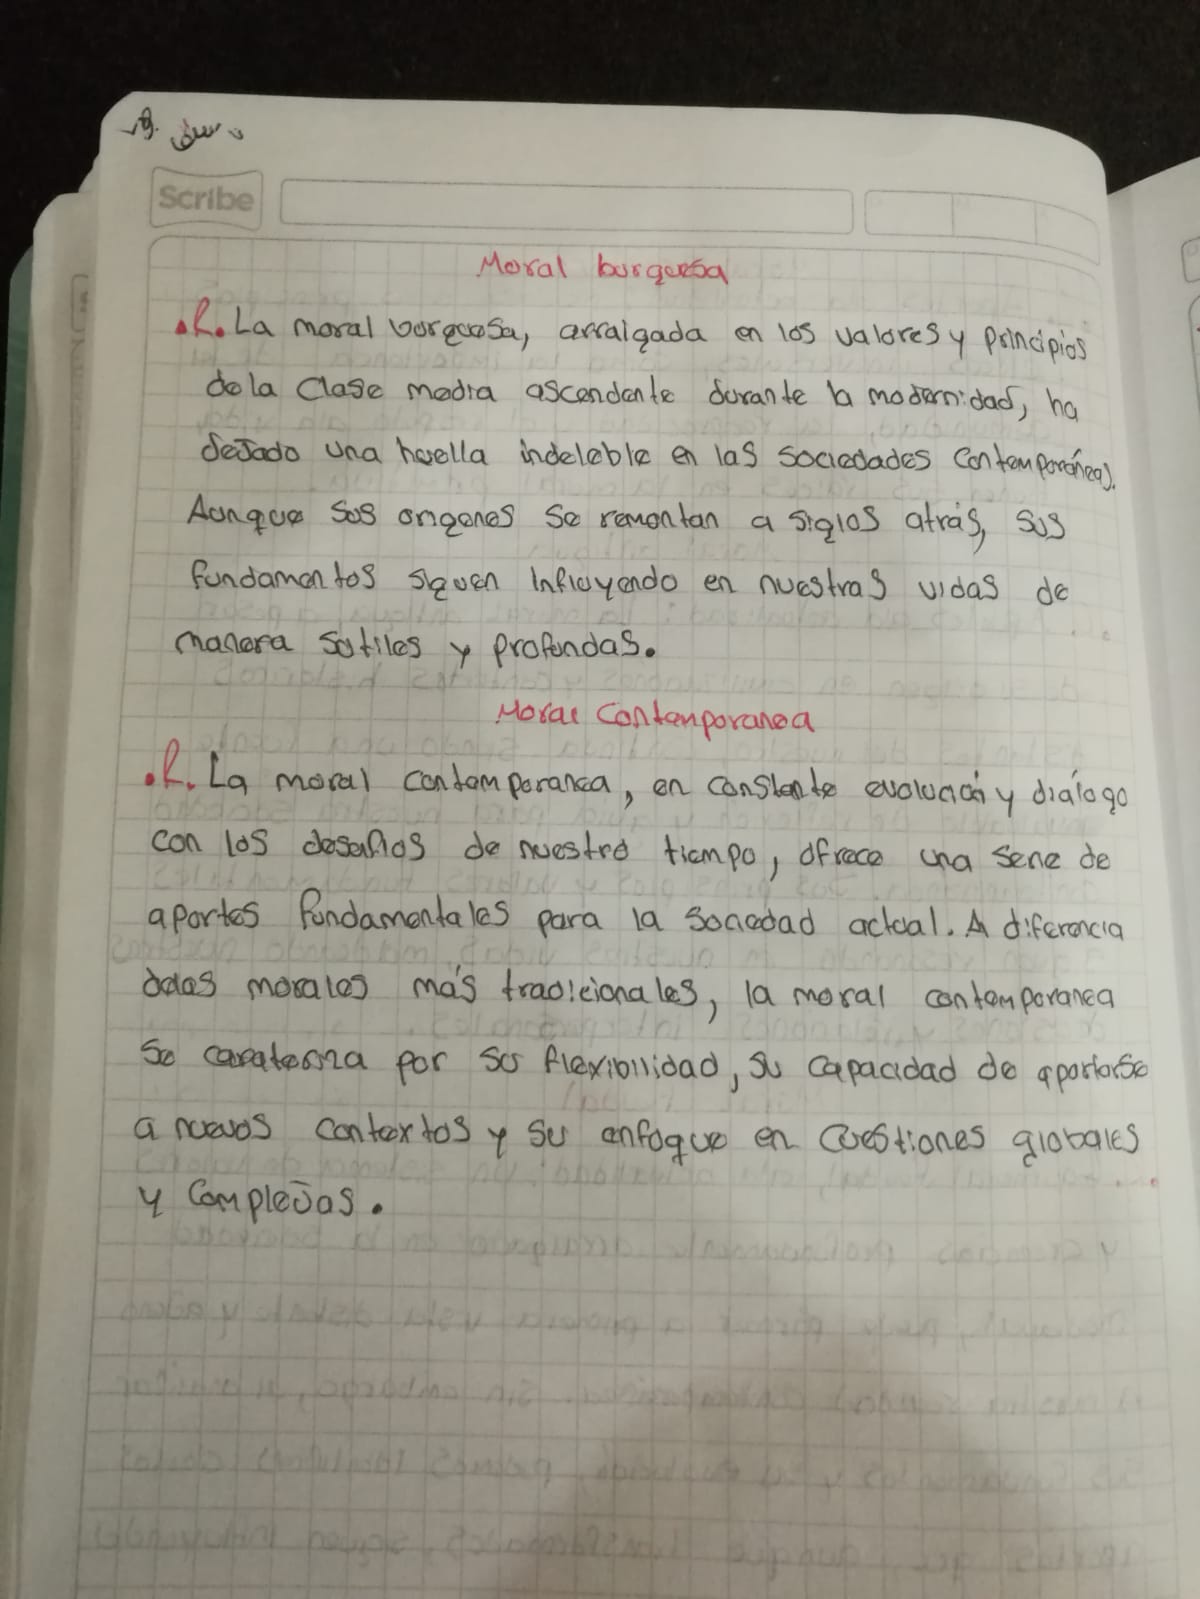 Scribe
Moral burguesa
.R. La moral burguesa, arraigada en los valores y principios
de la clase media ascendente durante la modernidad, ha
dejado una huella indeleble en las sociedades contemporáneas.
Aunque sus origenes se remontan a siglos atrás, sus
fundamentos siguen influyendo en nuestras vidas de
manera sutiles y profundas.
Moral Contemporanea
.R. La moral contemporanea, en constante evolución y diálogo
con los desafios de nuestro tiempo, ofrece una serie de
aportes fundamentales para la sociedad actual. A diferencia
delas morales más tradicionales, la moral contemporanea
se caraterina por su flexibilidad, su capacidad de aportarse
a nuevos contextos y su enfoque en cuestiones globales
y complejas.